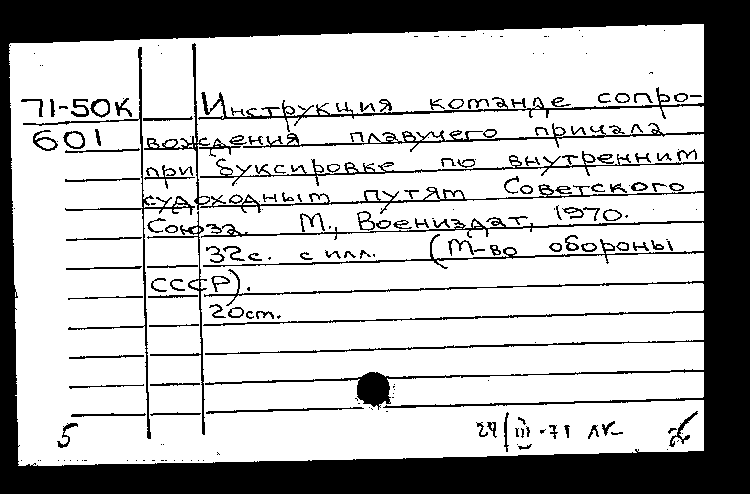 71-50К Инструкция команде сопро-
601 вождения плавучего причала
при буксировке по внутренним
судоходным путям Советского
Союза. М., Воениздат, 1970.
32с. с илл. (М-во обороны
СССР).
20см.
5 29/III-71 ЛК